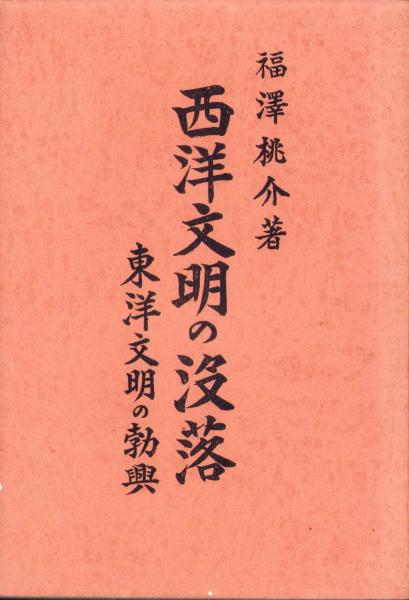 福澤桃介著
西洋文明の没落
東洋文明の勃興